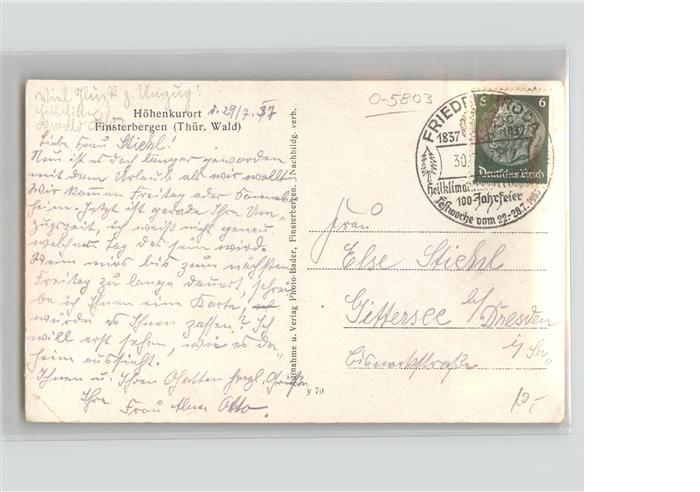 Viel Glück z. Umzug!
O-5803
Höhenkurort d. 29/7. 37
Finsterbergen (Thür. Wald)
Liebe Frau Stiehl!
Nun ist es doch länger geworden
mit dem Urlaub als wir wollten
Wir kommen Freitag oder Sonnab.
heim. Jetzt ist gerade Ihre Um-
zugszeit, ich weiß nicht genau
welcher Tag das sein wird.
Wenn mirs bis zum nächsten
Freitag zu lange dauert, schrei-
be ich Ihnen eine Karte,
würde es Ihnen passen? Ich
will erst sehen, wie es da-
heim aussieht.
Ihnen u. Ihrem Gatten herzl. Grüße
Ihre
Frau Otto.
Aufnahme u. Verlag Photo-Bader, Finsterbergen. Nachbildg. verb.
y 70
FRIEDRICHRODA
1837 1937
30.
Heilklimat.
100 Jahrfeier
Festwoche vom 22.-28.7.1937
6 6
Deutsches Reich
Frau
Else Stiehl
Gittersee b/Dresden
i/Sa.
Bismarckstraße
10,-